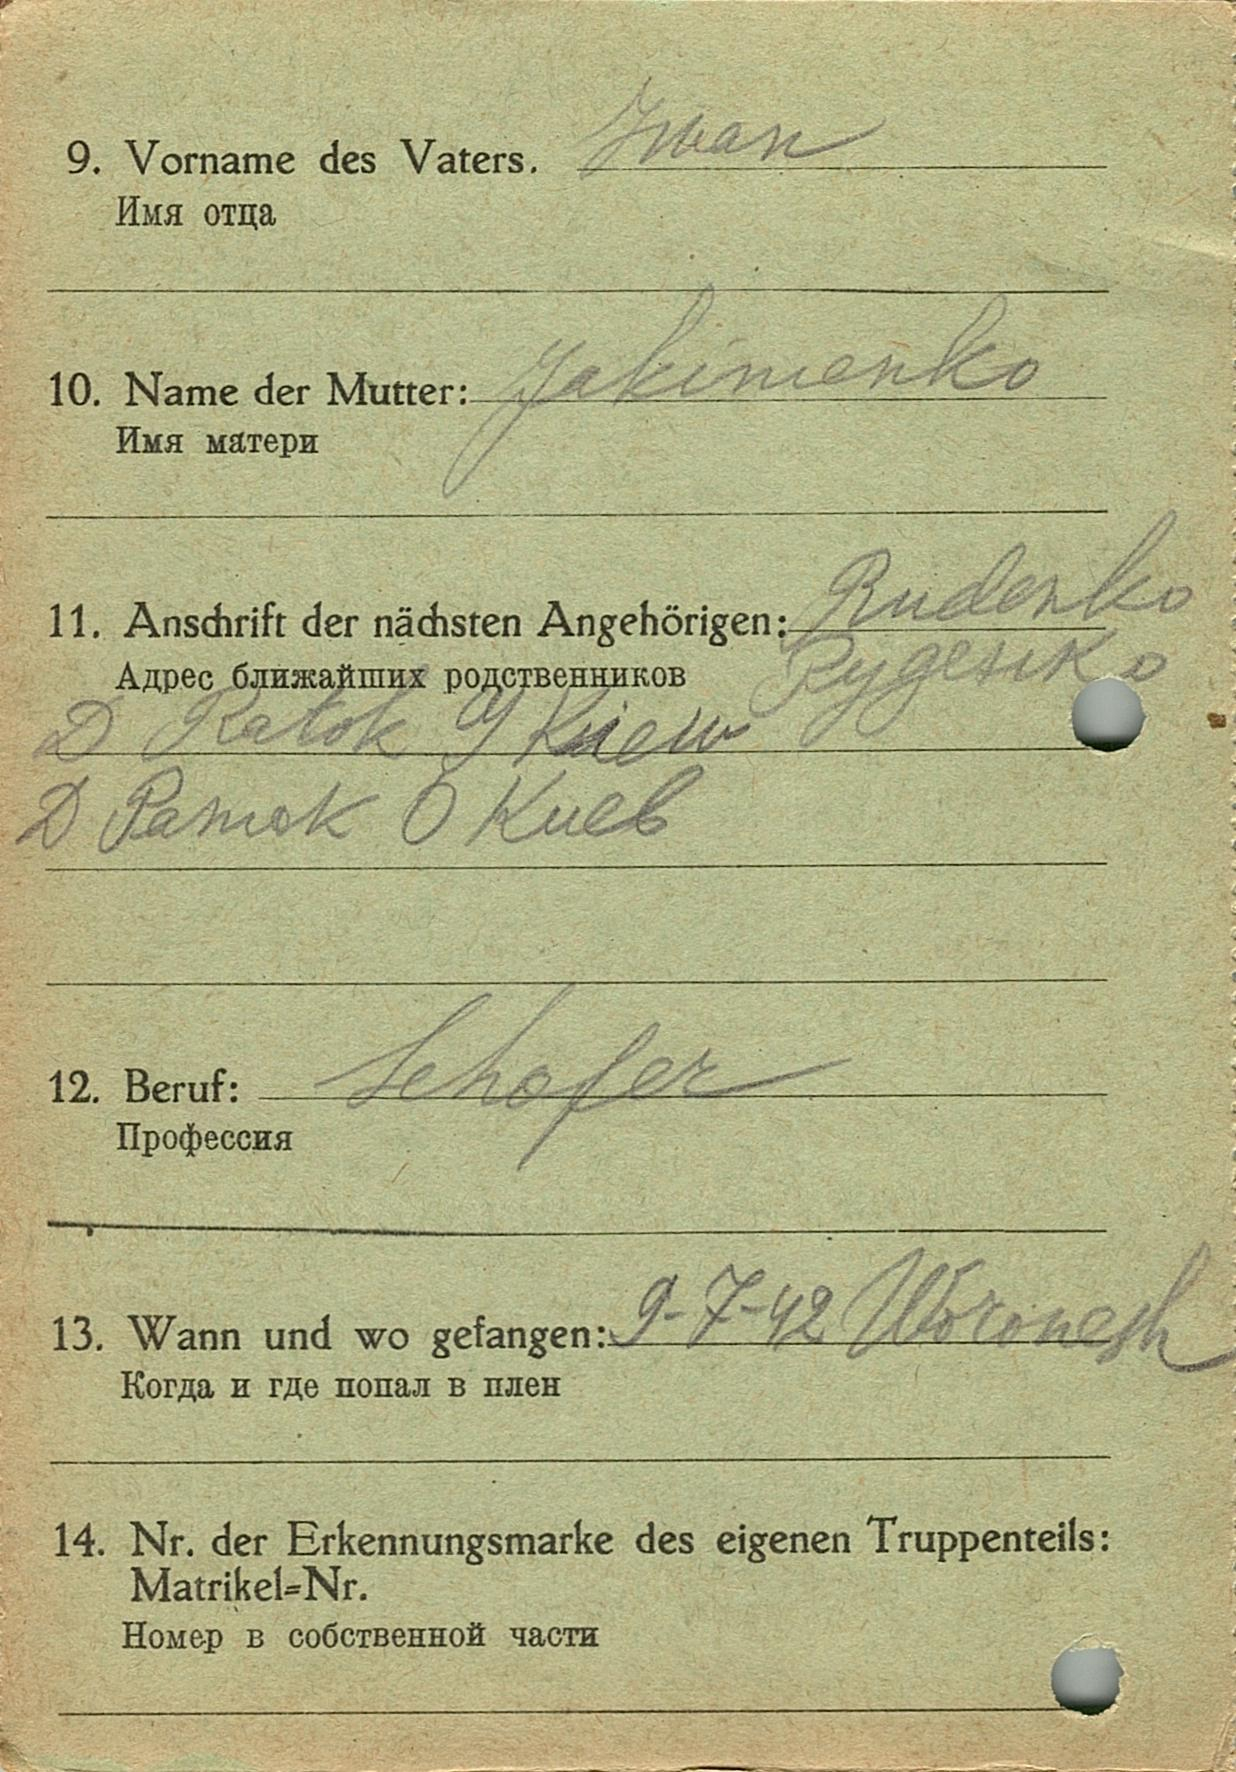 9. Vorname des Vaters. Iwan
Имя отца
10. Name der Mutter: Jakimenko
Имя матери
11. Anschrift der nächsten Angehörigen: Rudenko
Адрес ближайших родственников Руденко
D Ratok Kiew
Д Раток О Киев
12. Beruf: Schofer
Профессия
13. Wann und wo gefangen: 9-7-42 Woronesh
Когда и где попал в плен
14. Nr. der Erkennungsmarke des eigenen Truppenteils:
Matrikel=Nr.
Номер в собственной части